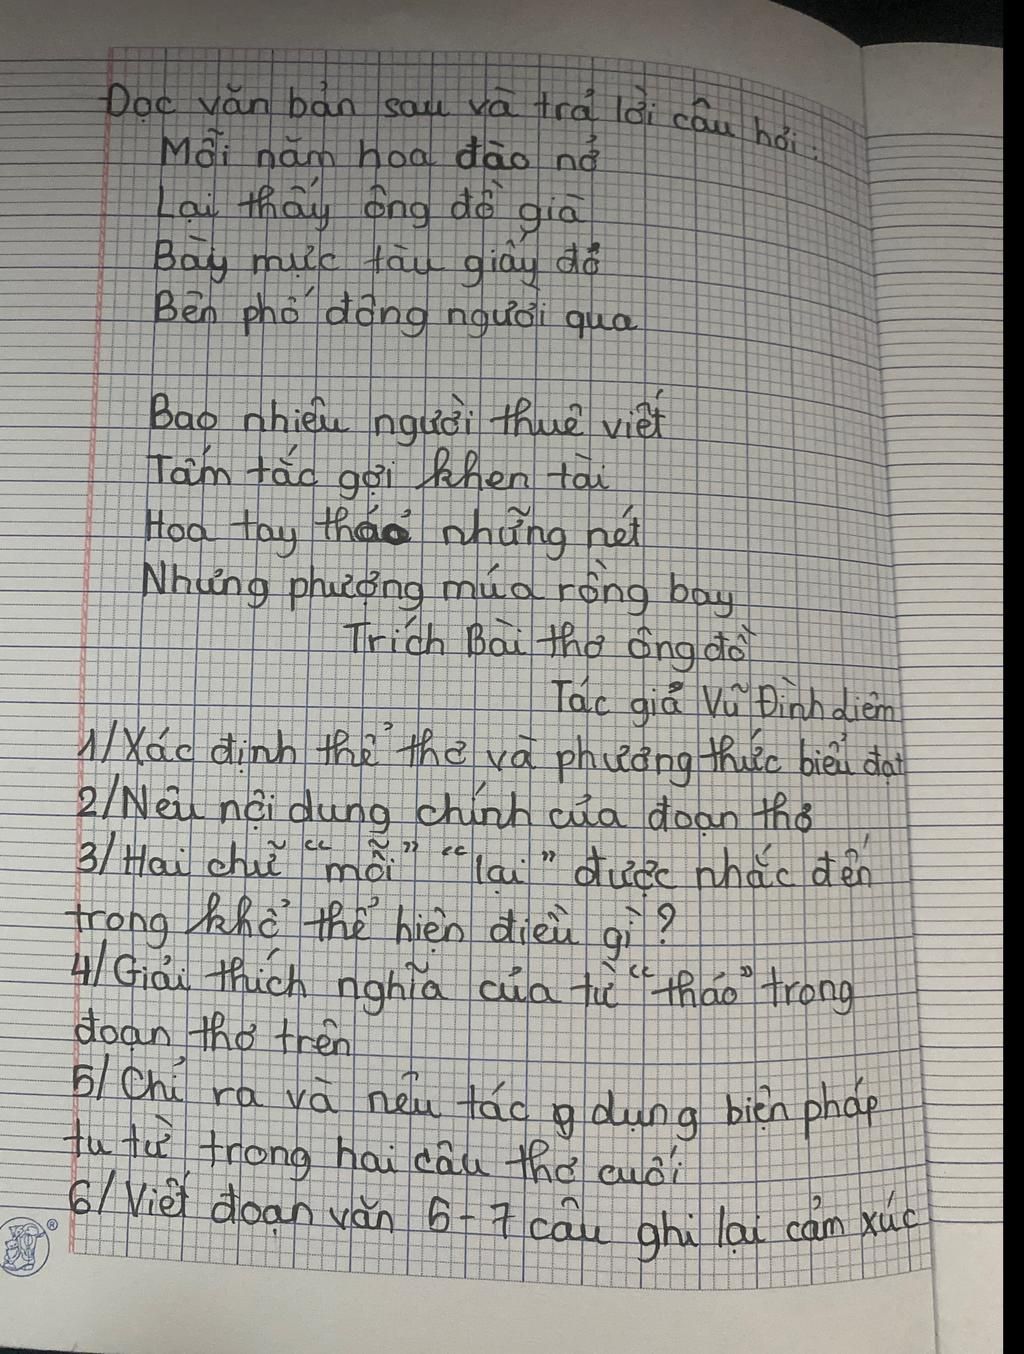 Đọc văn bản sau và trả lời câu hỏi:
Mỗi năm hoa đào nở
Lại thấy ông đồ già
Bày mực tàu giấy đỏ
Bên phố đông người qua
Bao nhiêu người thuê viết
Tấm tắc gợi khen tài
Hoa tay thảo những nét
Như phượng múa rồng bay
Trích Bài thơ ông đồ
Tác giả Vũ Đình diêm
1/ Xác định thể thơ và phương thức biểu đạt
2/ Nêu nội dung chính của đoạn thơ
3/ Hai chữ "mỗi" "lại" được nhắc đến
trong khổ thể hiện điều gì?
4/ Giải thích nghĩa của từ "thảo" trong
đoạn thơ trên
5/ Chỉ ra và nêu tác dụng biện pháp
tu từ trong hai câu thơ cuối
6/ Viết đoạn văn 6-7 câu ghi lại cảm xúc
®